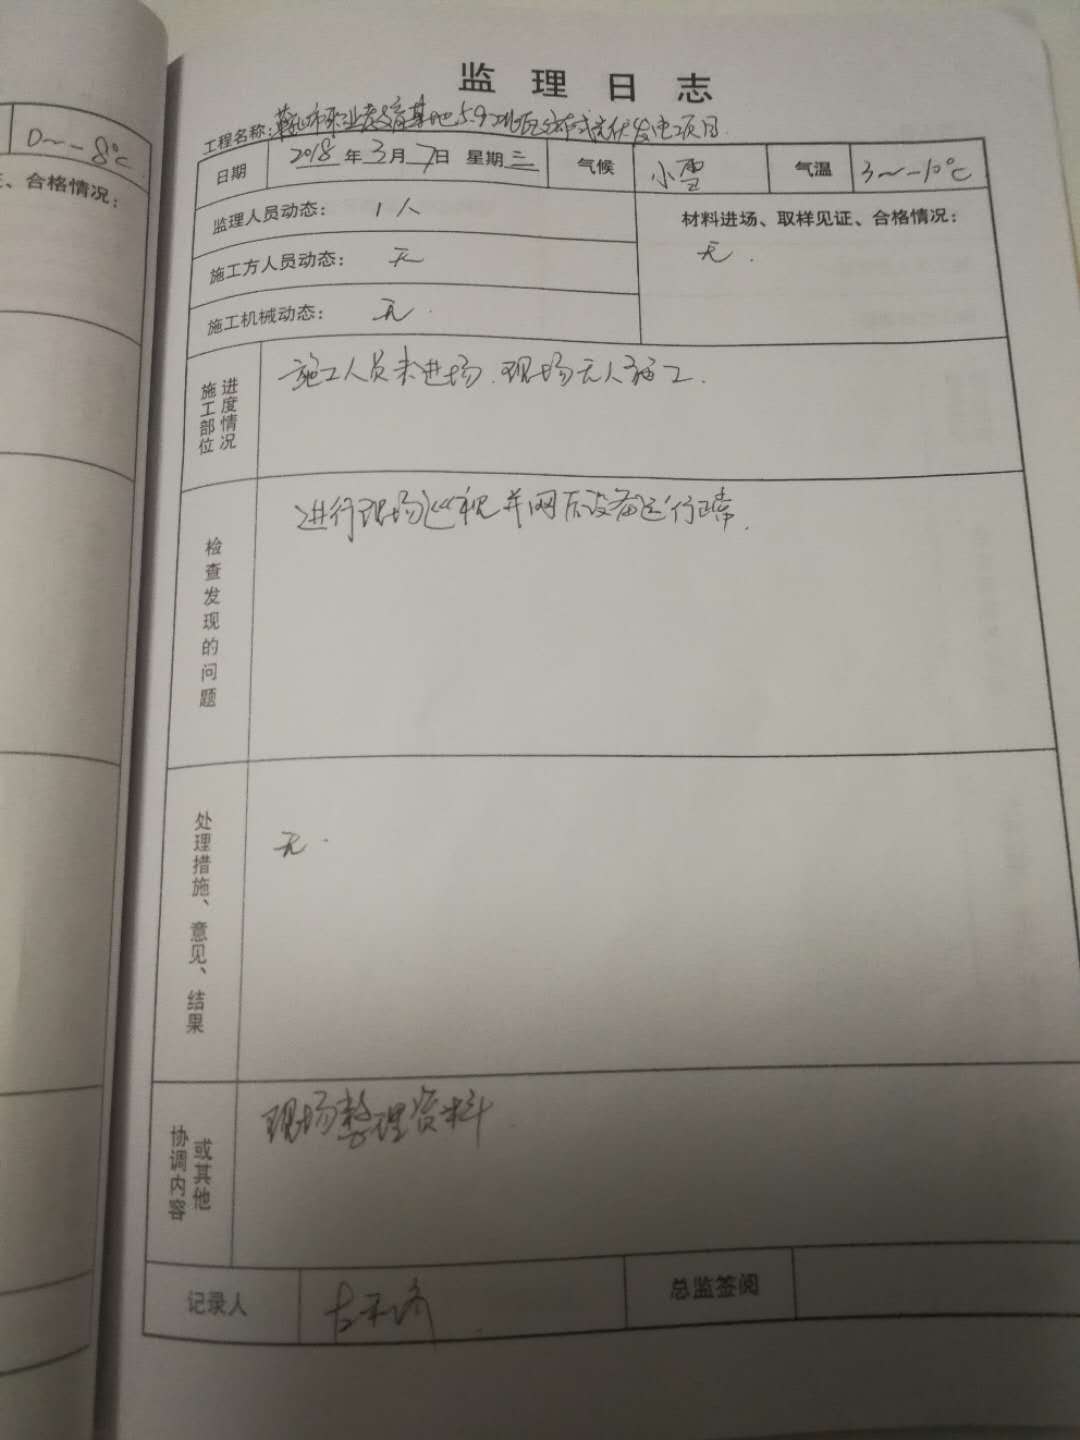 0～-8℃
、合格情况：
监理日志
工程名称：鞍山市职业教育基地5.9兆瓦分布式光伏发电项目
日期 2018年3月7日 星期三 气候 小雪 气温 3～-10℃
监理人员动态： 1人
材料进场、取样见证、合格情况：
无.
施工方人员动态： 无
施工机械动态： 无.
施工部位
进度情况
施工人员未进场.现场无人施工.
检查发现的问题
进行现场巡视并网后设备运行正常.
处理措施、意见、结果
无.
协调内容
或其他
现场整理资料
记录人
总监签阅